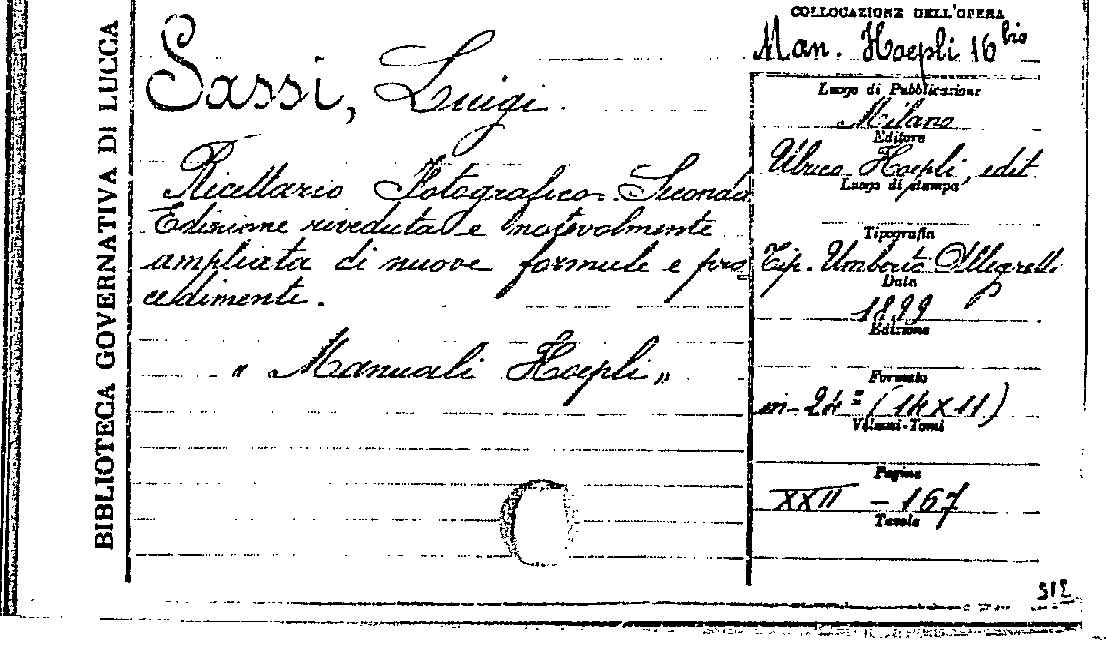 BIBLIOTECA GOVERNATIVA DI LUCCA
Sassi, Luigi.
Ricettario Fotografico. Seconda
Edizione riveduta e notevolmente
ampliata di nuove formule e pro
cedimente.
"Manuali Hoepli"
COLLOCAZIONE DELL'OPERA
Man. Hoepli 16 bis
Luogo di Pubblicazione
Milano
Editore
Ulrico Hoepli, edit.
Luogo di stampa
Tipografia
Tip. Umberto Allegretti
Data
1899
Edizione
Formato
in-24º (14x11)
Volumi-Tomi
Pagine
XXII - 167
Tavole